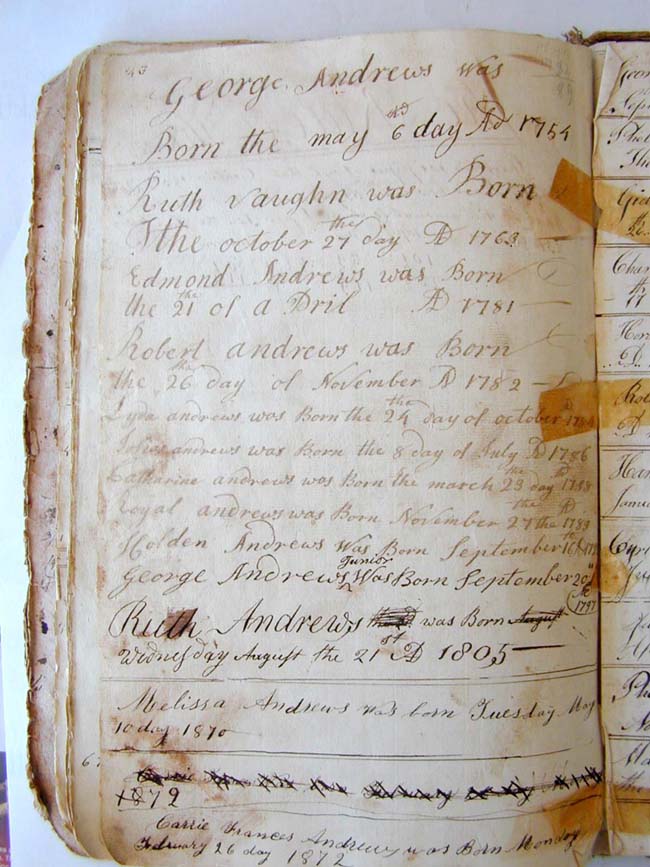 George Andrews was
Born the may 6 day AD 1754
Ruth vaughn was Born
the october 27 the day AD 1763
Edmond Andrews was Born
the 21 the of a Dril AD 1781
Robert andrews was Born
the 26 the day of November AD 1782
Lyda andrews was Born the 24 the day of october AD
andrews was Born the 8 day of July AD 1786
Catharine andrews was Born the march 23 the day AD 1788
Royal andrews was Born November 27 the AD
Holden Andrews Was Born September 16 th
George Andrews Junior Was Born September 20
1797
Ruth Andrews was Born August
Widnesday August the 21 st AD 1805
Melissa Andrews was born Tuesday May
10 day 1870
1872
Carrie Frances Andrews was Born Monday
February 26 day 1872